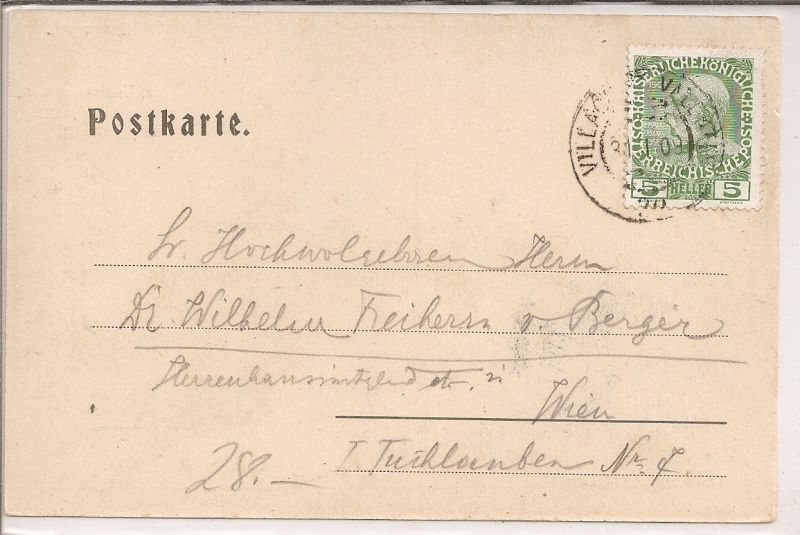 Postkarte.
VILLA
31 I 09
KAISERLICHE KÖNIGLICHE
ÖSTERREICHISCHE POST
5 HELLER 5
Sr. Hochwolgeboren Herrn
Dr. Wilhelm Freiherrn v. Berger
Herrenhausmitglied etc. in
Wien
I Tuchlauben Nr. 7.
28.—